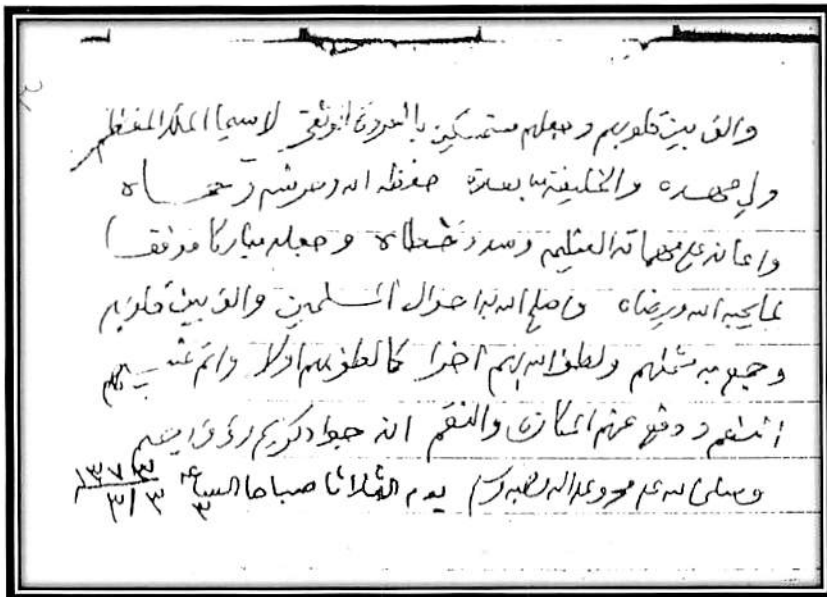 والف بين قلوبهم وجعلهم مستمسكين بالعروة الوثقى لا سيما الملك المعظم
ولي عهده والخليفة من بعده حفظه الله وحرسه وحماه
واعانه على مهماته العظيمه وسدد خطاه وجعله مباركا موفقا
لما يحبه الله ويرضاه واصلح الله به احوال المسلمين والف بين قلوبهم
وجمع به شملهم ولطف الله بهم اخرا كما لطف بهم اولا واتم عليهم
النعم ودفع عنهم المكاره والنقم انه جواد كريم رؤوف رحيم
وصلى الله على محمد وعلى اله وصحبه وسلم يوم الثلاثا صباحا الساعة ٣
١٣٧٣
٣/٣
٣